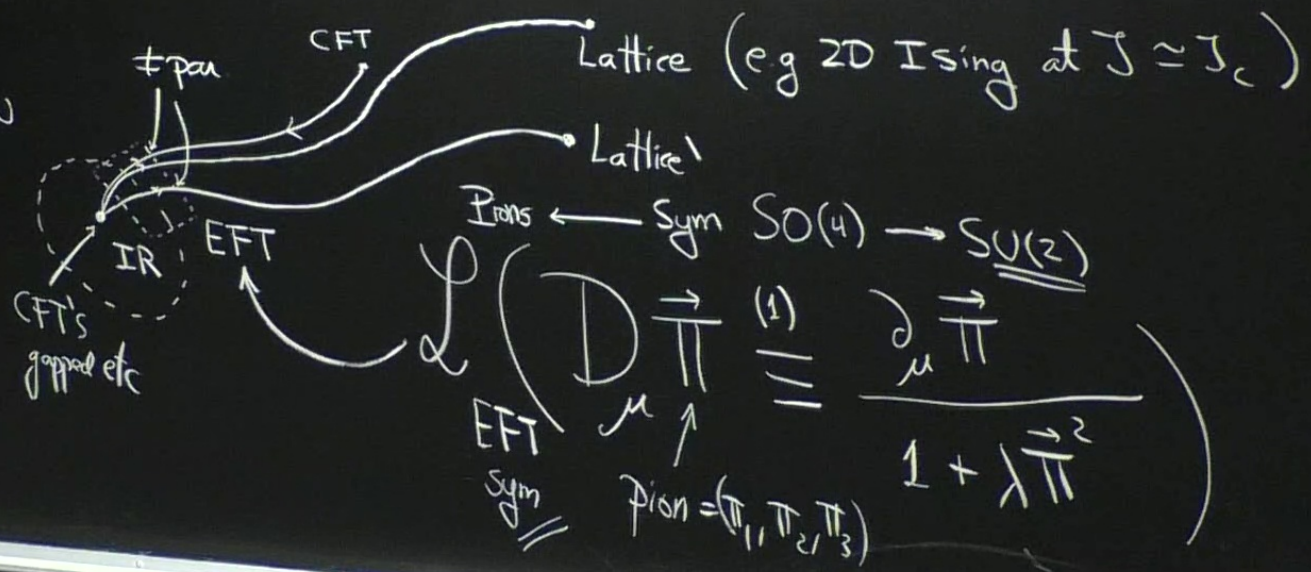 CFT
# par
Lattice (e.g 2D Ising at J ≃ J_c)
Lattice'
Pions ← Sym SO(4) → SU(2)
IR
EFT
CFT's
gapped etc
ℒ ( D_μ π⃗ ≡^(1) ∂_μ π⃗ / (1 + λ π⃗²) )
EFT
sym
pion = (π₁, π₂, π₃)